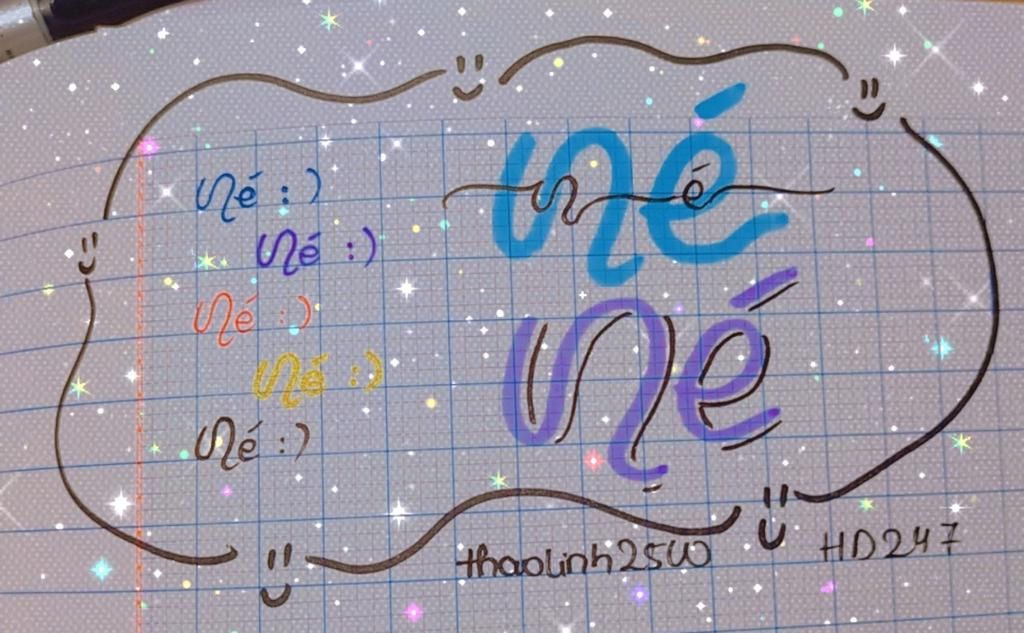 Né :)
Né :)
Né :)
Né :)
Né :)
Né
né
Né
thaolinh25W
HD247